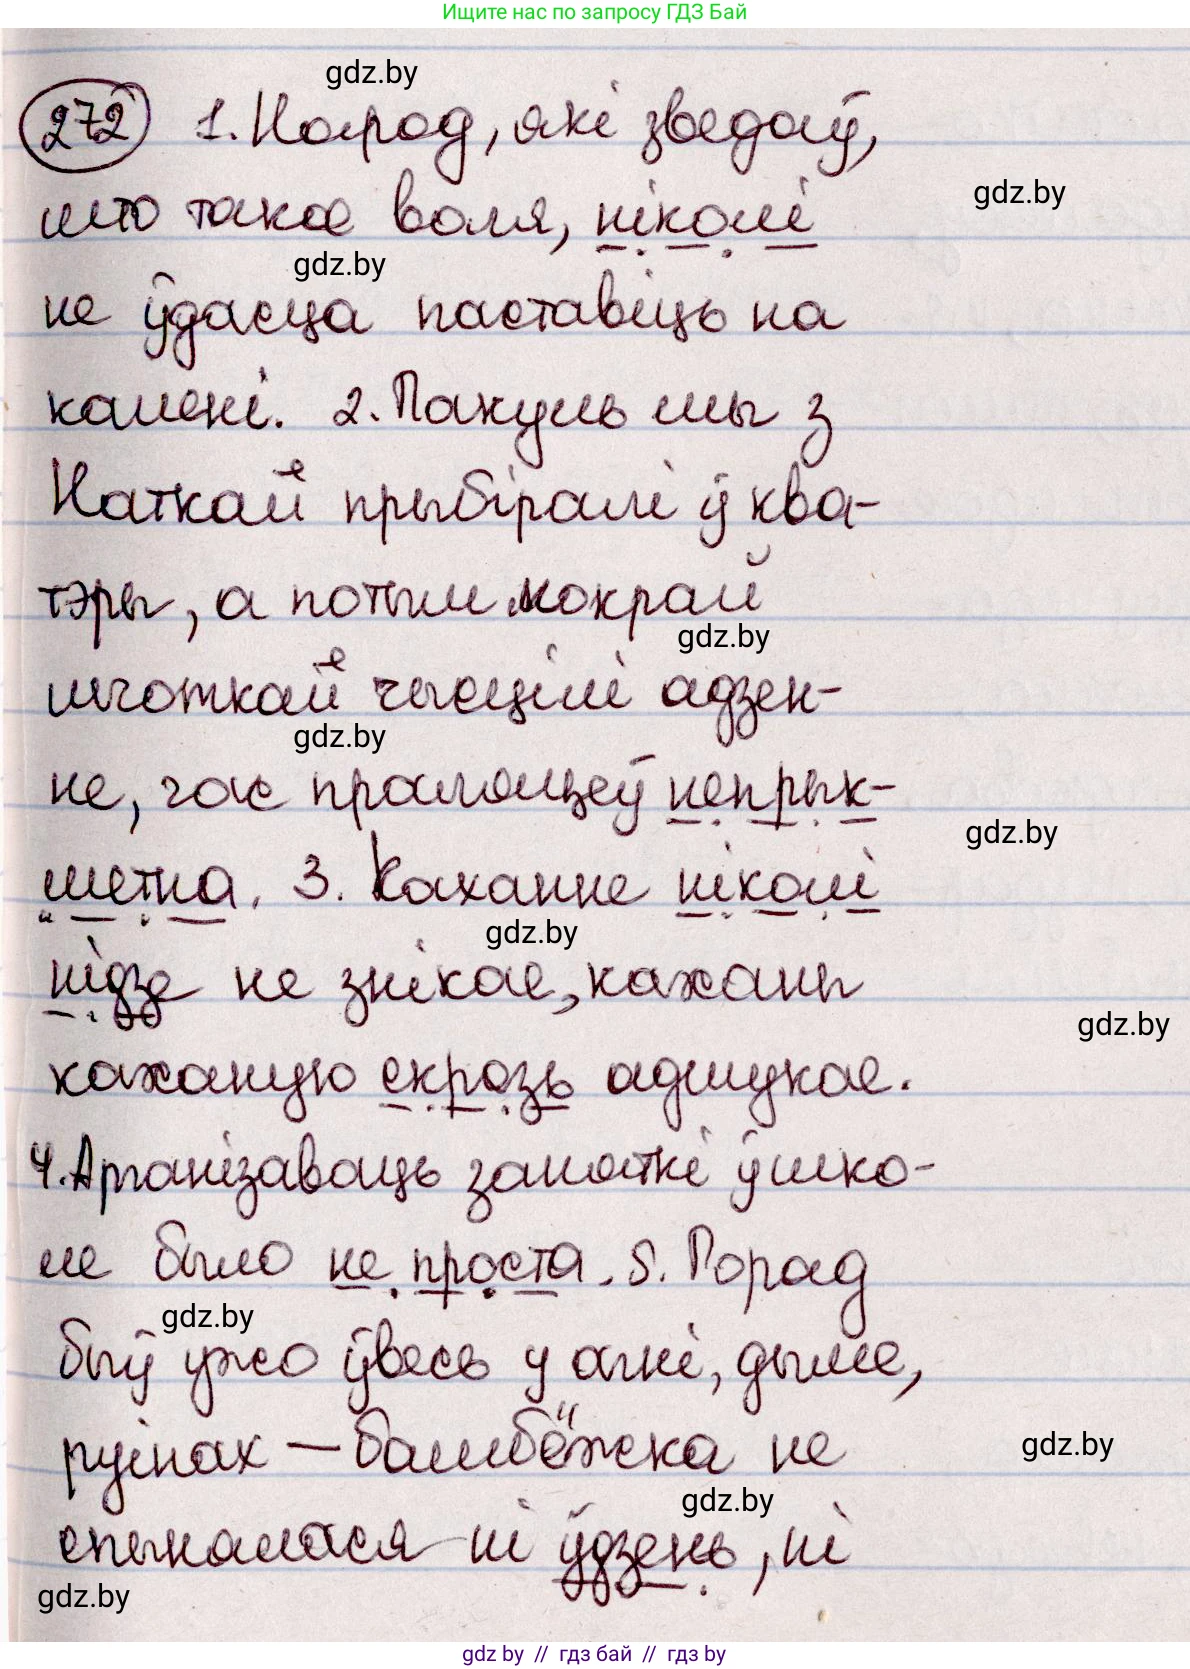 Ищите нас по запросу ГДЗ Бай
gdz.by
272 1. Народ, які зведаў,
што такое воля, ніколі
gdz.by
gdz.by
не ўдасца паставіць на
калені. 2. Пакуль мы з
Наткай прыбіралі ў ква-
тэры, а потым мокрай
gdz.by
шчоткай чысцілі адзен-
gdz.by
не, час праляцеў непрык-
gdz.by
метна. 3. Каханне ніколі
gdz.by
нідзе не знікае, каханы
gdz.by
каханую скрозь адшукае.
4. Арганізаваць заняткі ў шко-
ле было не проста. 5. Горад
gdz.by
быў ужо ўвесь у агні, дыме,
руінах — бамбёжка не
gdz.by
gdz.by
спынялася ні ўдзень, ні
gdz.by
gdz by // гдз бай // гдз by